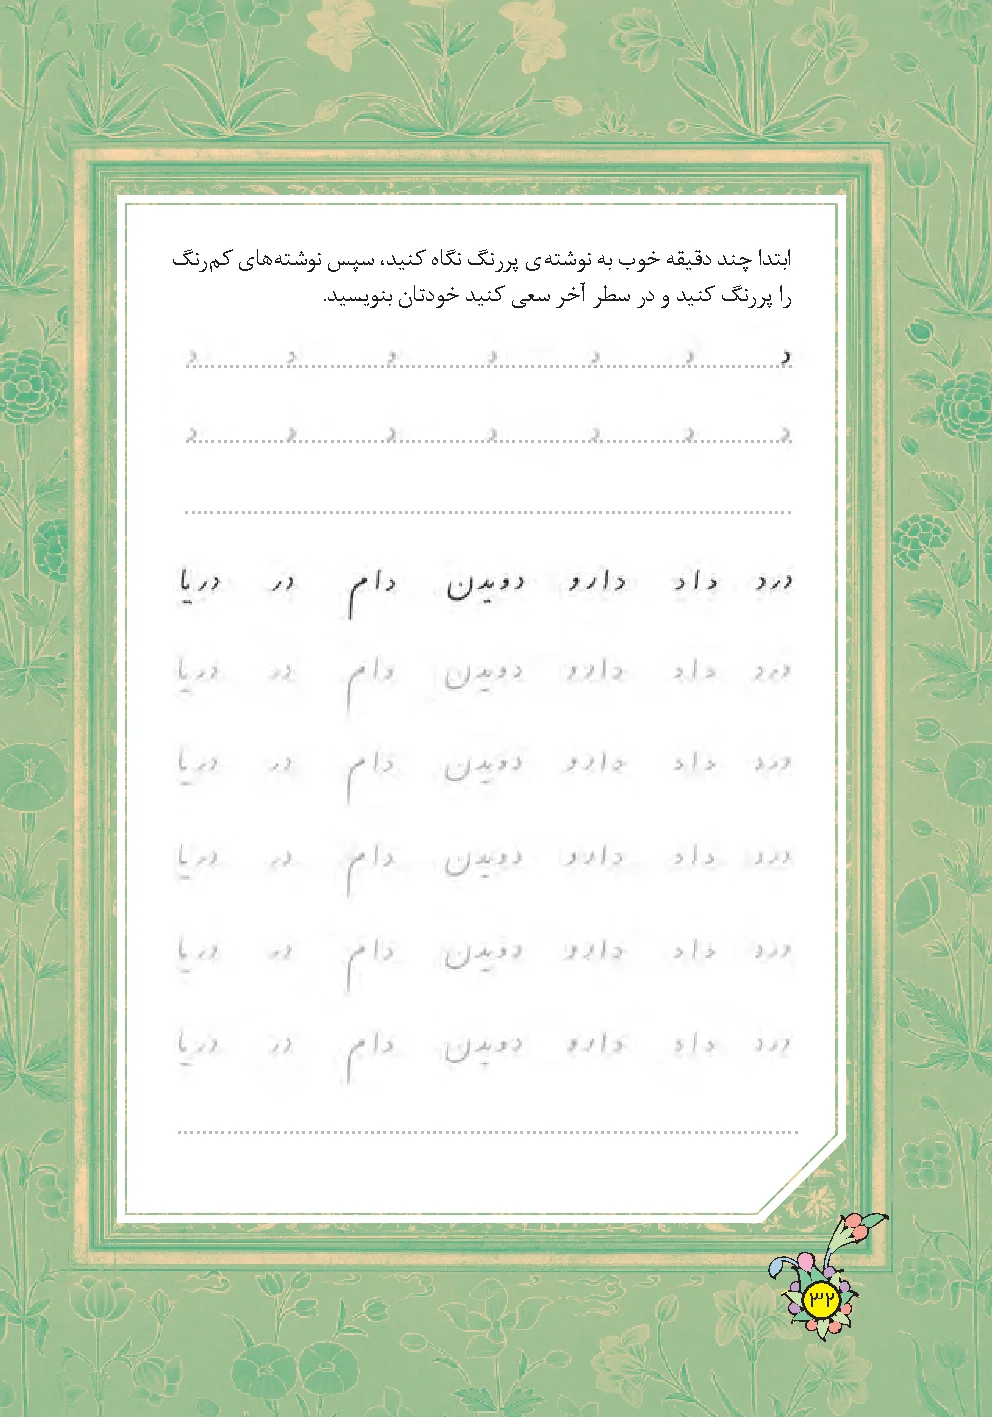 ابتدا چند دقیقه خوب به نوشته‌ی پررنگ نگاه کنید، سپس نوشته‌های کم‌رنگ
را پررنگ کنید و در سطر آخر سعی کنید خودتان بنویسید.
د د د د د د د
د د د د د د د
درد داد دارو دویدن دام در دریا
درد داد دارو دویدن دام در دریا
درد داد دارو دویدن دام در دریا
درد داد دارو دویدن دام در دریا
درد داد دارو دویدن دام در دریا
درد داد دارو دویدن دام در دریا
۳۲